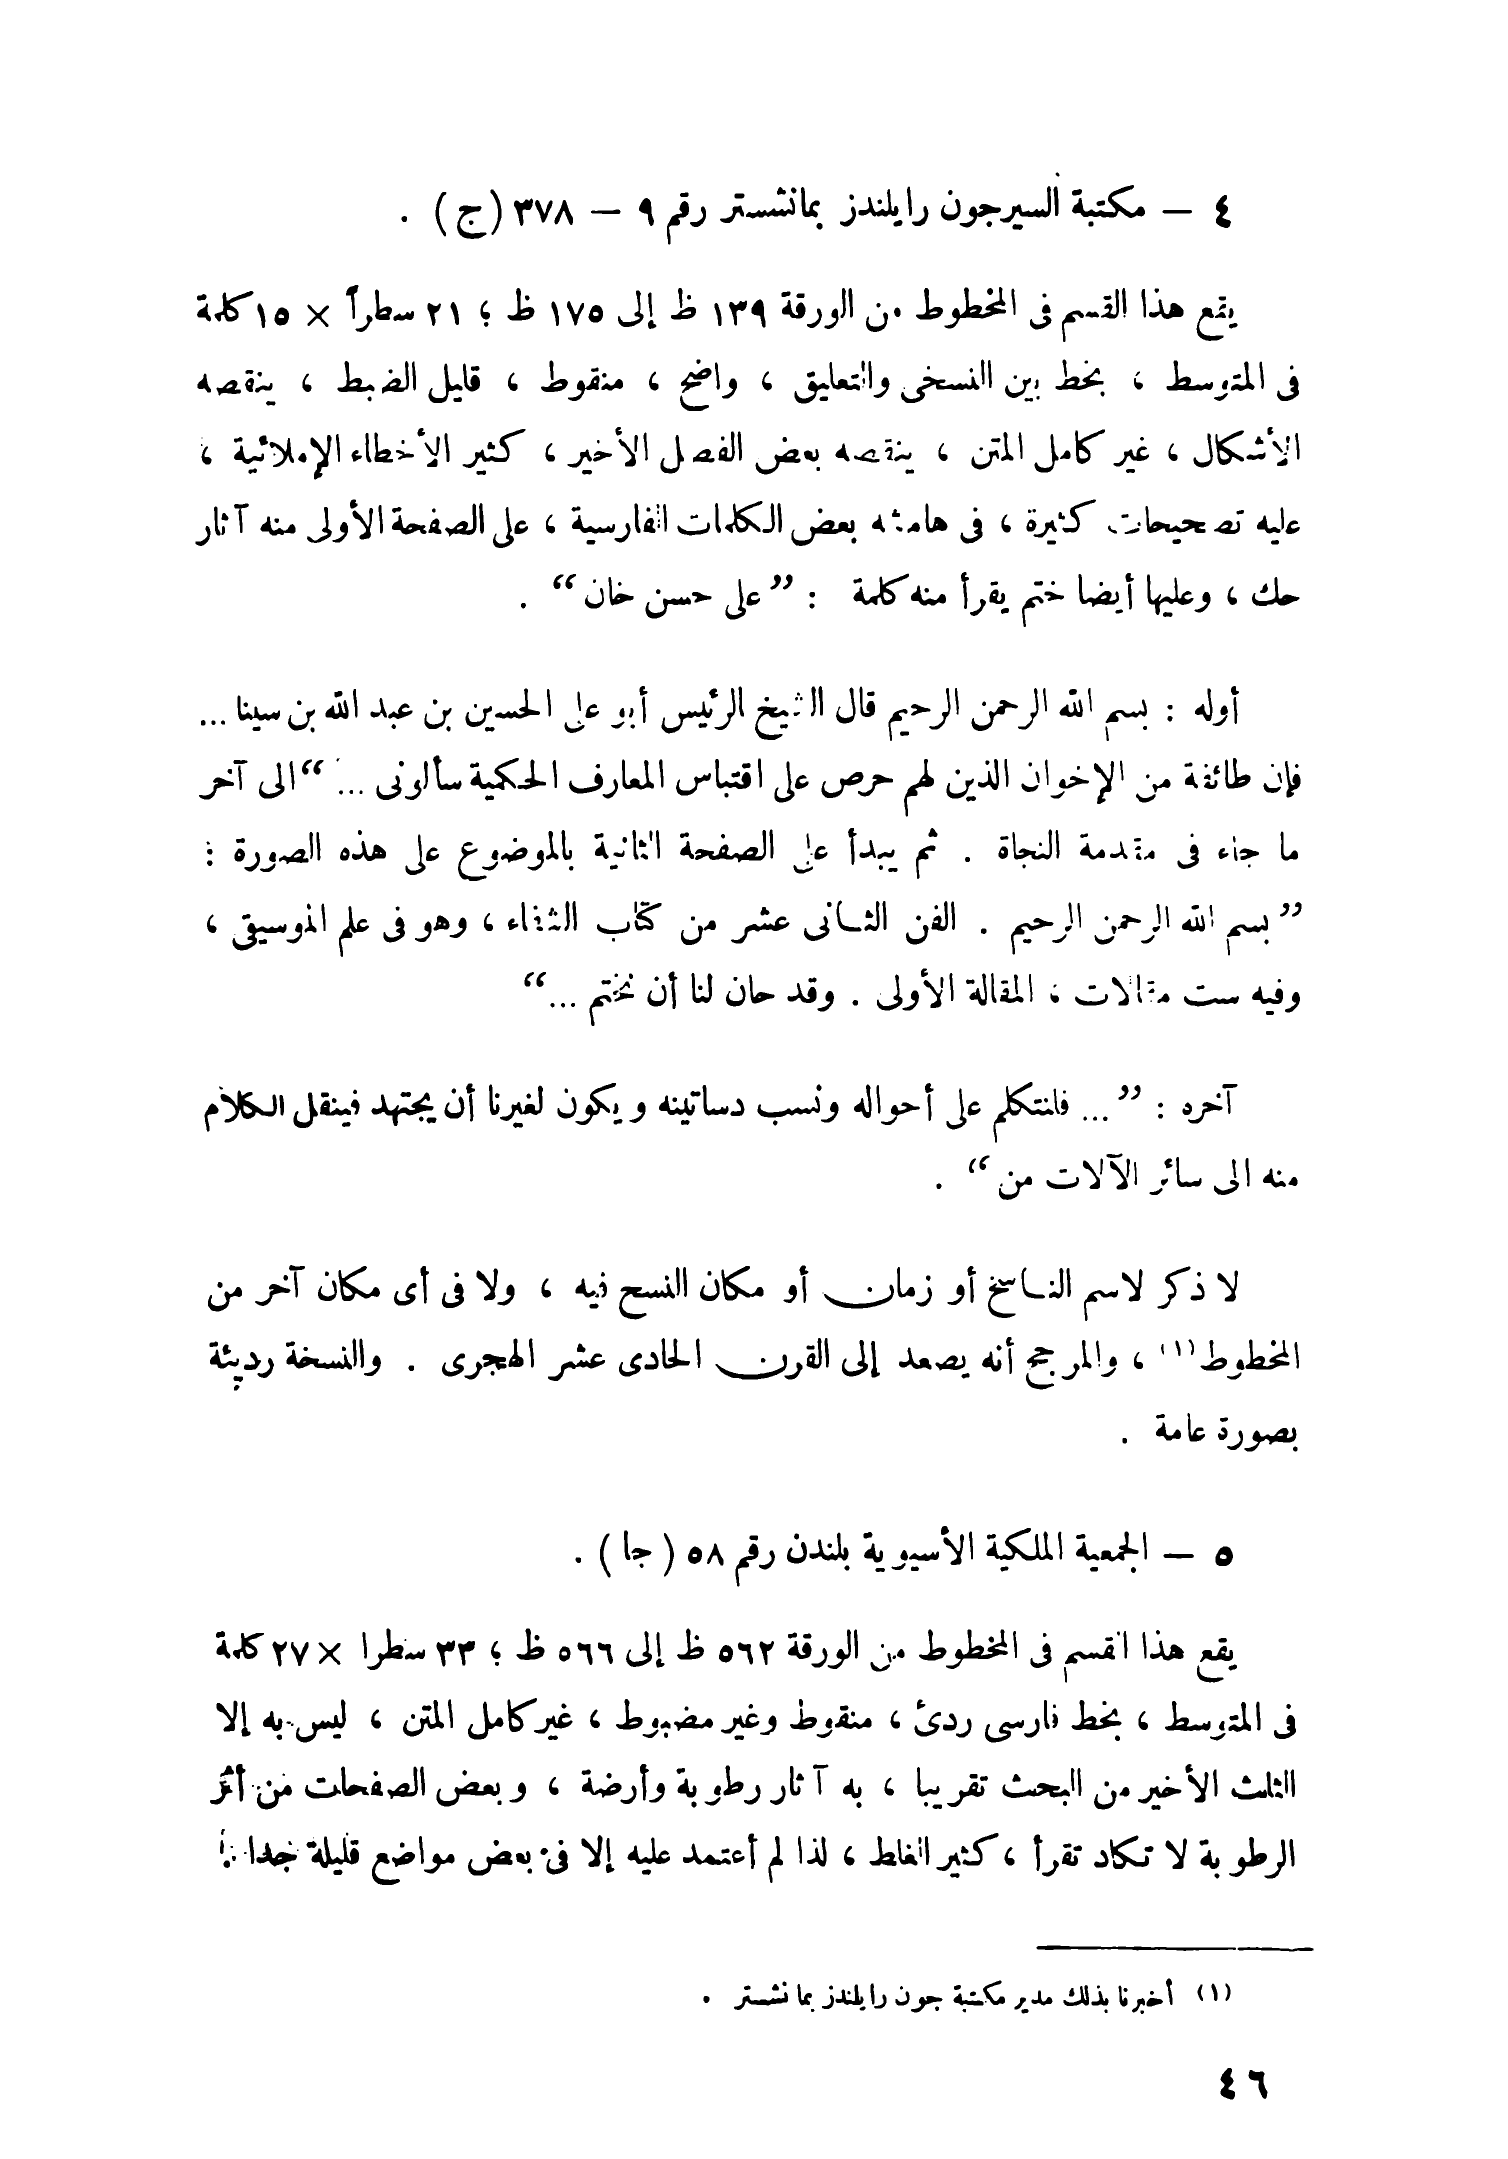 ٤ — مكتبة السيرجون رايلندز بمانشستر رقم ٩ — ٣٧٨ (ج) .
يقع هذا القسم فى المخطوط من الورقة ١٣٩ ظ إلى ١٧٥ ظ ؛ ٢١ سطراً × ١٥ كلمة
فى المتوسط ، بخط بين النسخى والتعليق ، واضح ، منقوط ، قليل الضبط ، ينقصه
الأشكال ، غير كامل المتن ، ينقصه بعض الفصل الأخير ، كثير الأخطاء الإملائية ،
عليه تصحيحات كثيرة ، فى هامشه بعض الكلمات الفارسية ، على الصفحة الأولى منه آثار
حك ، وعليها أيضا ختم يقرأ منه كلمة : ” على حسن خان “ .
أوله : بسم الله الرحمن الرحيم قال الشيخ الرئيس أبو على الحسين بن عبد الله بن سينا ...
فإن طائفة من الإخوان الذين لهم حرص على اقتباس المعارف الحكمية سألونى ... “ الى آخر
ما جاء فى مقدمة النجاة . ثم يبدأ على الصفحة الثانية بالموضوع على هذه الصورة :
” بسم الله الرحمن الرحيم . الفن الثانى عشر من كتاب الشفاء ، وهو فى علم الموسيقى ،
وفيه ست مقالات ، المقالة الأولى . وقد حان لنا أن نختم ... “
آخره : ” ... فلنتكلم على أحواله ونسب دساتينه ويكون لغيرنا أن يجتهد فينقل الكلام
منه الى سائر الآلات من “ .
لا ذكر لاسم الناسخ أو زمان أو مكان النسخ فيه ، ولا فى أى مكان آخر من
المخطوط (١) ، والمرجح أنه يصعد إلى القرن الحادى عشر الهجرى . والنسخة رديئة
بصورة عامة .
٥ — الجمعية الملكية الأسيوية بلندن رقم ٥٨ ( جا ) .
يقع هذا القسم فى المخطوط من الورقة ٥٦٢ ظ إلى ٥٦٦ ظ ؛ ٣٣ سطرا × ٢٧ كلمة
فى المتوسط ، بخط فارسى ردئ ، منقوط وغير مضبوط ، غير كامل المتن ، ليس به إلا
الثلث الأخير من البحث تقريبا ، به آثار رطوبة وأرضة ، وبعض الصفحات من أثر
الرطوبة لا تكاد تقرأ ، كثير الغلط ، لذا لم أعتمد عليه إلا فى بعض مواضع قليلة جدا .
(١) أخبرنا بذلك مدير مكتبة جون رايلندز بمانشستر .
٤٦